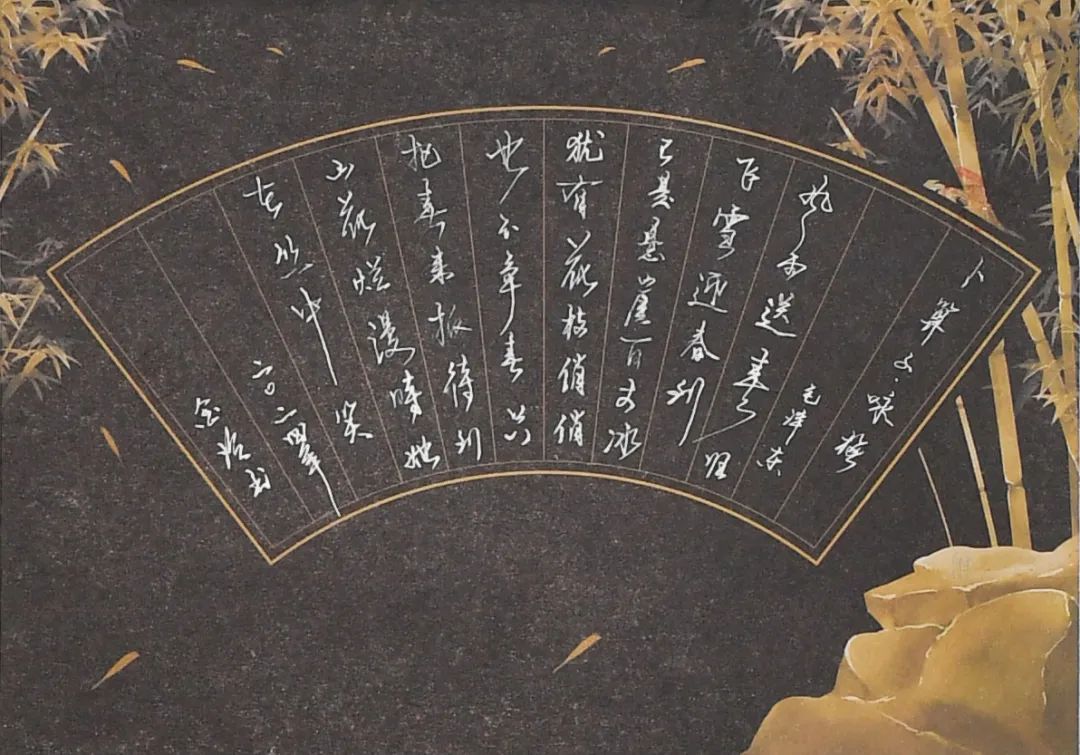 卜算子·咏梅
毛泽东
风雨送春归
飞雪迎春到
已是悬崖百丈冰
犹有花枝俏俏
也不争春只
把春来报待到
山花烂漫时她
在丛中笑
二〇二四年
金书